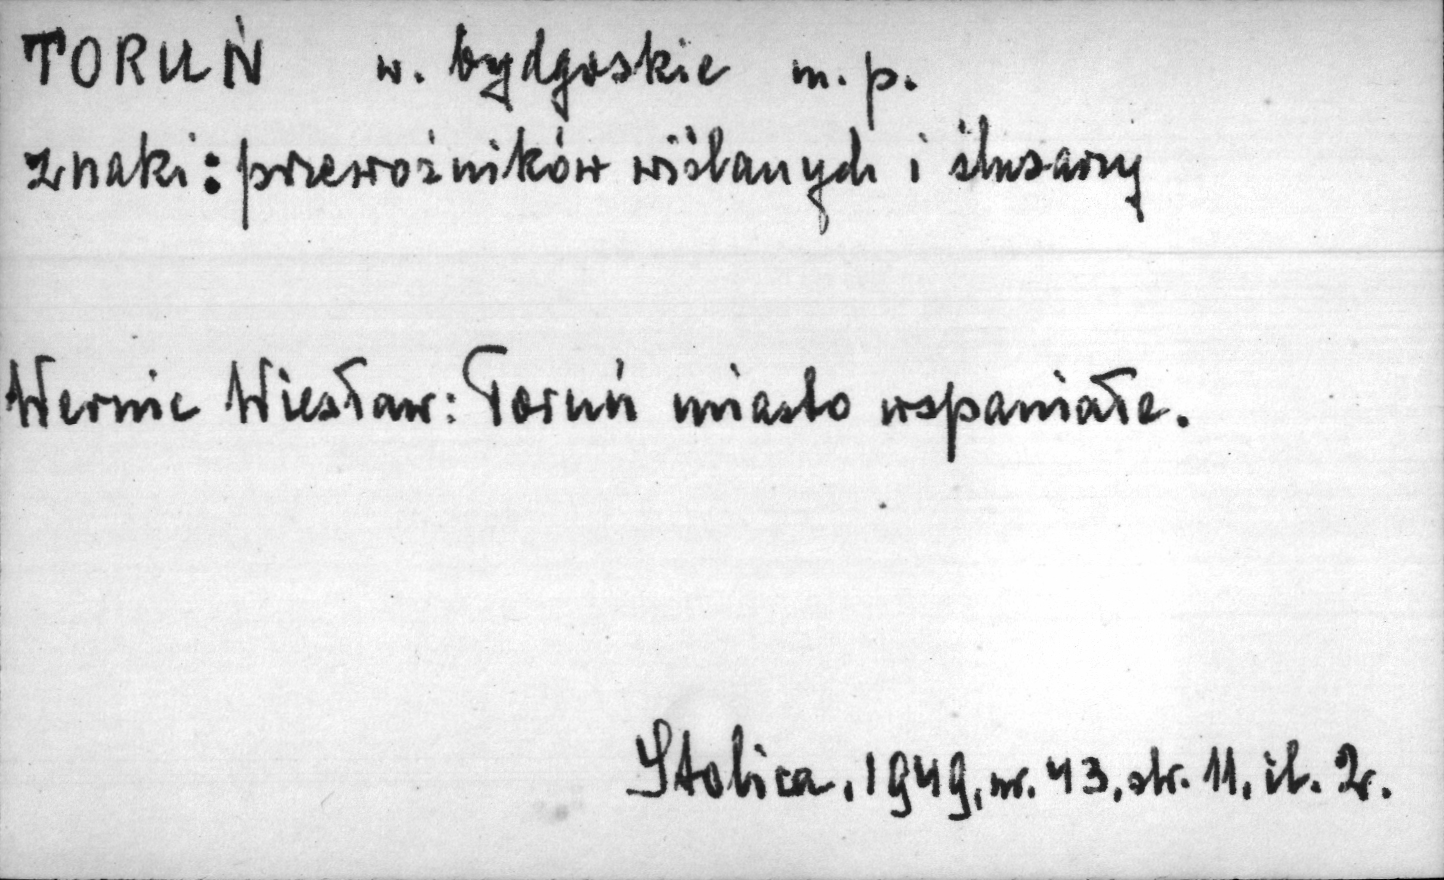 TORUŃ w. bydgoskie m. p.
znaki: przewoźników wiślanych i ślusarzy
Wernic Wiesław: Toruń miasto wspaniałe.
Stolica, 1949, nr. 43, str. 11, il. 2.